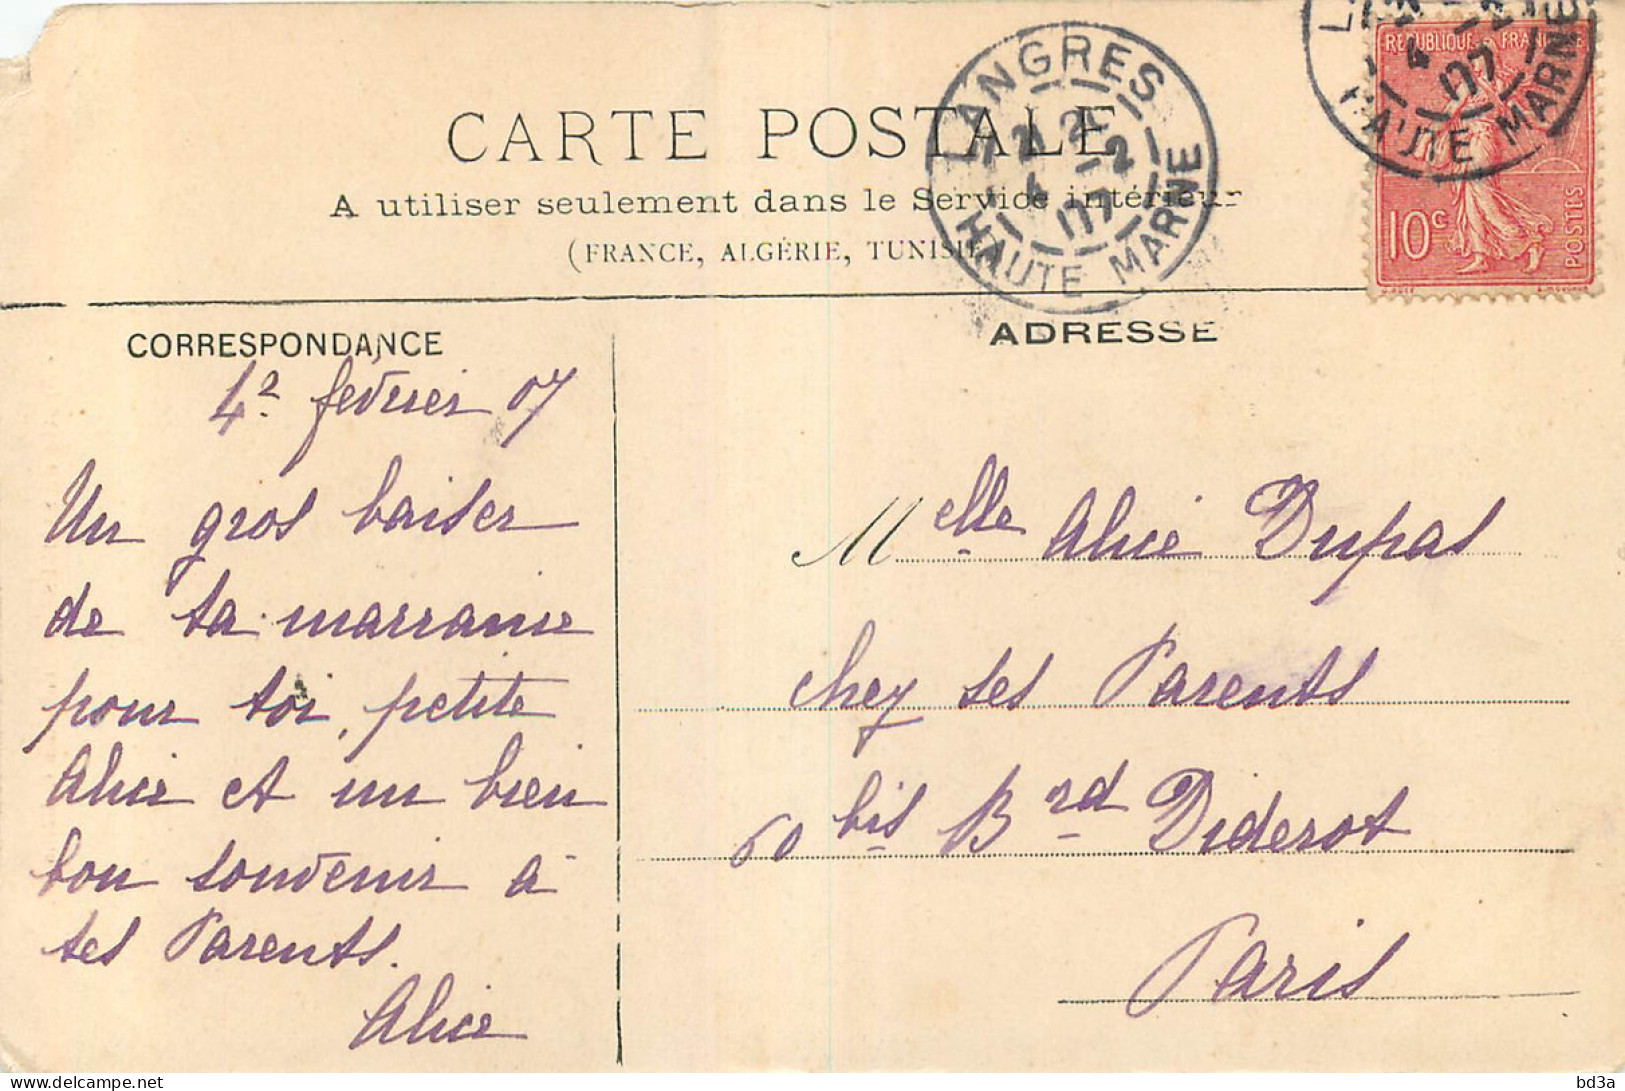 CARTE POSTALE
A utiliser seulement dans le Service intérieur
(FRANCE, ALGÉRIE, TUNISIE)
LANGRES
HAUTE MARNE
HAUTE MARNE
REPUBLIQUE FRANÇAISE
10c
POSTES
CORRESPONDANCE
ADRESSE
février 07
Un gros baiser
de ta marraine
pour toi, petite
Alice et un bien
bon souvenir à
tes Parents.
Alice
Melle Alice Dupas
chez ses Parents
60 bis Brd Diderot
Paris
bd3a